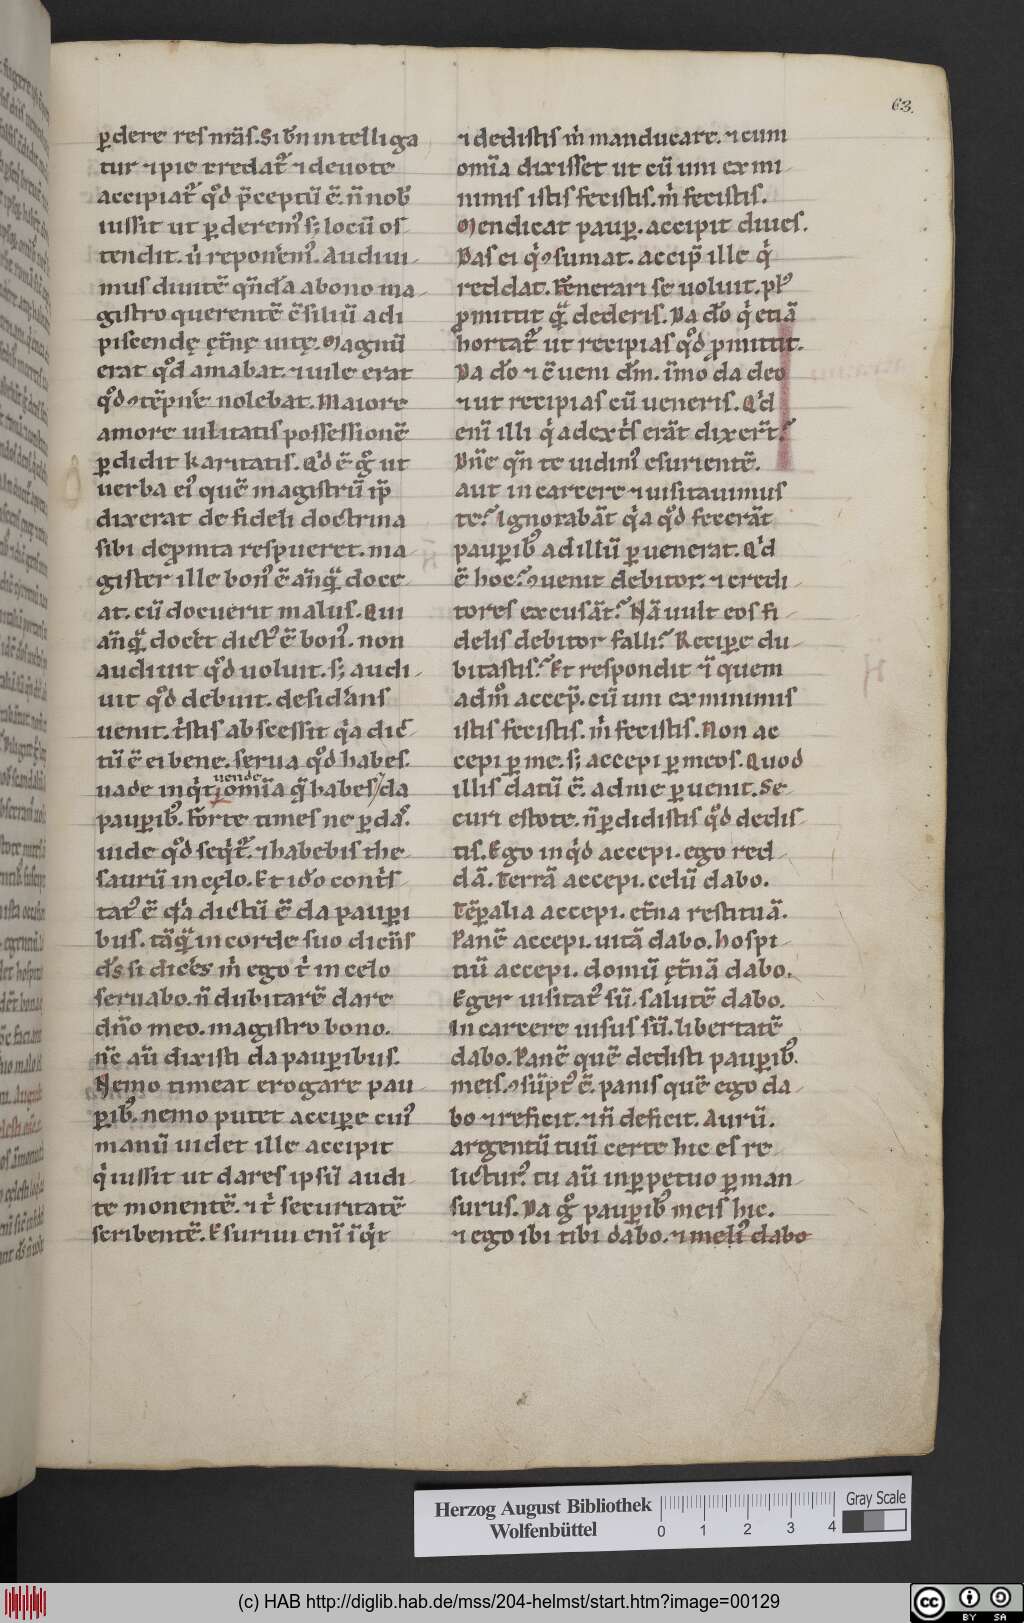 63.
p̲dere res nr̄as. Si bn̄ intelliga
tur ⁊ pie credat᷑ ⁊ deuote
accipiat᷑ qd̊ p̄ceptū ē. n̄ nob̄
iussit ut p̲derem᷒ s; locū os-
tendit. u̇ reponem᷒. Audiui-
mus diuitē qn̄dā a bono ma-
gistro querentē c̄siliū adi
piscendę ęt̄nę uitę. Magnū
erat qd̊ amabat. ⁊ uile erat
qd̊ ꝯtēpn̄e nolebat. Maiore
amore uilitatis possessionē
p̲didit karitatis. Qd̓ ē g̊ ut
uerba ei᷒ quē magistrū ip̄
dixerat de fideli doctrina
sibi dep̲mta respueret. ma-
gister ille bon᷒ ē anq̄ doce-
at. cū docuerit malus. Qui
anq̄ doc̄et dict᷒ ē bon᷒. non
audiuit qd̊ uoluit. s; audi-
uit qd̊ debuit. desidāns
uenit. t̓stis abscessit q̓a dic-
tū ē ei bene. serua qd̊ habes.
uende
uade inq̓t omīa q̄ habes / da
paup̲ib᷒. Forte times ne p̲das.
uide qd̊ seq̓t᷑. ⁊ habebis the-
saurū in cęlo. Et ido̓ cont̓s-
tat᷒ ē q̓a dictū ē da paup̲i
bus. tāq̄ in corde suo dicēs
ds̄ si dices m̓ ego t̓ in celo
seruabo. n̄ dubitarē dare
dn̄o meo. magistro bono.
nc̄ aū dixisti da paup̲ibus.
Nemo timeat erogare pau-
p̲ib᷒. nemo putet accip̲e cui᷒
manū uidet ille accipit
q̓ iussit ut dares ipsū audi-
te monentē. ⁊ t̓ securitatē
scribentē. Esuriui enī īq̓t
⁊ dedistis m̓ manducare. ⁊ cum
omīa dixisset ut cū uni ex mi
nimis istis fecistis. m̓ fecistis.
Mendicat paup̲. accipit diues.
Das ei q̓ ꝯsumat. accip̄ ille q̓
reddat. Fenerari se uoluit. pl᷒
p̲mittit q̄ dederis. Da do̓ q̓ etiā
hortat᷑ ut recipias qd̊ p̲mittit.
Da do̓ ⁊ c̄ueni dm̄. īmo da deo
⁊ ut recipias cū ueneris. Qd̓
enī illi q̓ a dext̓s erāt dixer̄t?
Dn̄e qn̄ te uidim᷒ esurientē.
aut in carcere ⁊ uisitauimus
te? Ignorabāt q̓a qd̊ fecerāt
paup̲ib᷒ ad illū p̲uenerat. Qd̓
ē hoc? ꝯuenit debitor. ⁊ credi-
tores excusāt? Nā uult eos fi-
delis debitor falli? Recip̲e du-
bitastis? Et respondit ī quem
adm̊ accep̄. cū uni ex minimis
istis fecistis. m̓ fecistis. Non ac
cepi p̲ me. s; accepi p̲ meos. Quod
illis datū ē. ad me p̲uenit. Se-
curi estote. n̄ p̲didistis qd̊ dedis-
tis. Ego inq̓d accepi. ego red-
dā. Terrā accepi. celū dabo.
Tēp̲alia accepi. et̄na restituā.
Panē accepi. uitā dabo. hospi-
tiū accepi. domū ęt̄nā dabo.
Eger uisitat᷒ sū. salutē dabo.
In carcere uisus sū. libertatē
dabo. Panē quē dedisti paup̲ib᷒.
meis. ꝯsūpt᷒ ē. panis quē ego da-
bo ⁊ reficit. ⁊ n̄ deficit. Aurū.
argentū tuū certe hic es re-
lictur᷒. tu aū in p̲petuo p̲man-
surus. Da g̊ paup̲ib᷒ meis hic.
⁊ ego ibi tibi dabo. ⁊ meli᷒ dabo
Herzog August Bibliothek
Wolfenbüttel
0 1 2 3 4
Gray Scale
(c) HAB http://diglib.hab.de/mss/204-helmst/start.htm?image=00129
cc BY SA